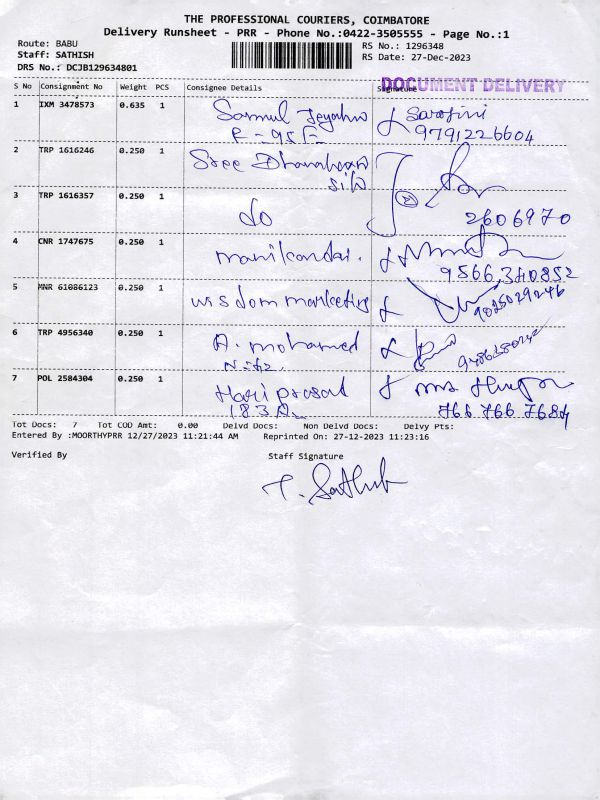 THE PROFESSIONAL COURIERS, COIMBATORE
Delivery Runsheet - PRR - Phone No.:0422-3505555 - Page No.:1
Route: BABU
Staff: SATHISH
DRS No.: DCJB129634801
RS No.: 1296348
RS Date: 27-Dec-2023
DOCUMENT DELIVERY
S No Consignment No Weight PCS Consignee Details Signature
1 IXM 3478573 0.635 1
9791226604
2 TRP 1616246 0.250 1 Sree
3 TRP 1616357 0.250 1 do
2606970
4 CNR 1747675 0.250 1 manikandai.
9566 340852
5 MNR 61086123 0.250 1 wisdom marketing
9025029246
6 TRP 4956340 0.250 1 A. mohamed
7 POL 2584304 0.250 1 Hari prasat
183A
766 766 7684
Tot Docs: 7 Tot COD Amt: 0.00 Delvd Docs: Non Delvd Docs: Delvy Pts:
Entered By :MOORTHYPRR 12/27/2023 11:21:44 AM Reprinted On: 27-12-2023 11:23:16
Verified By Staff Signature
T. Sathish